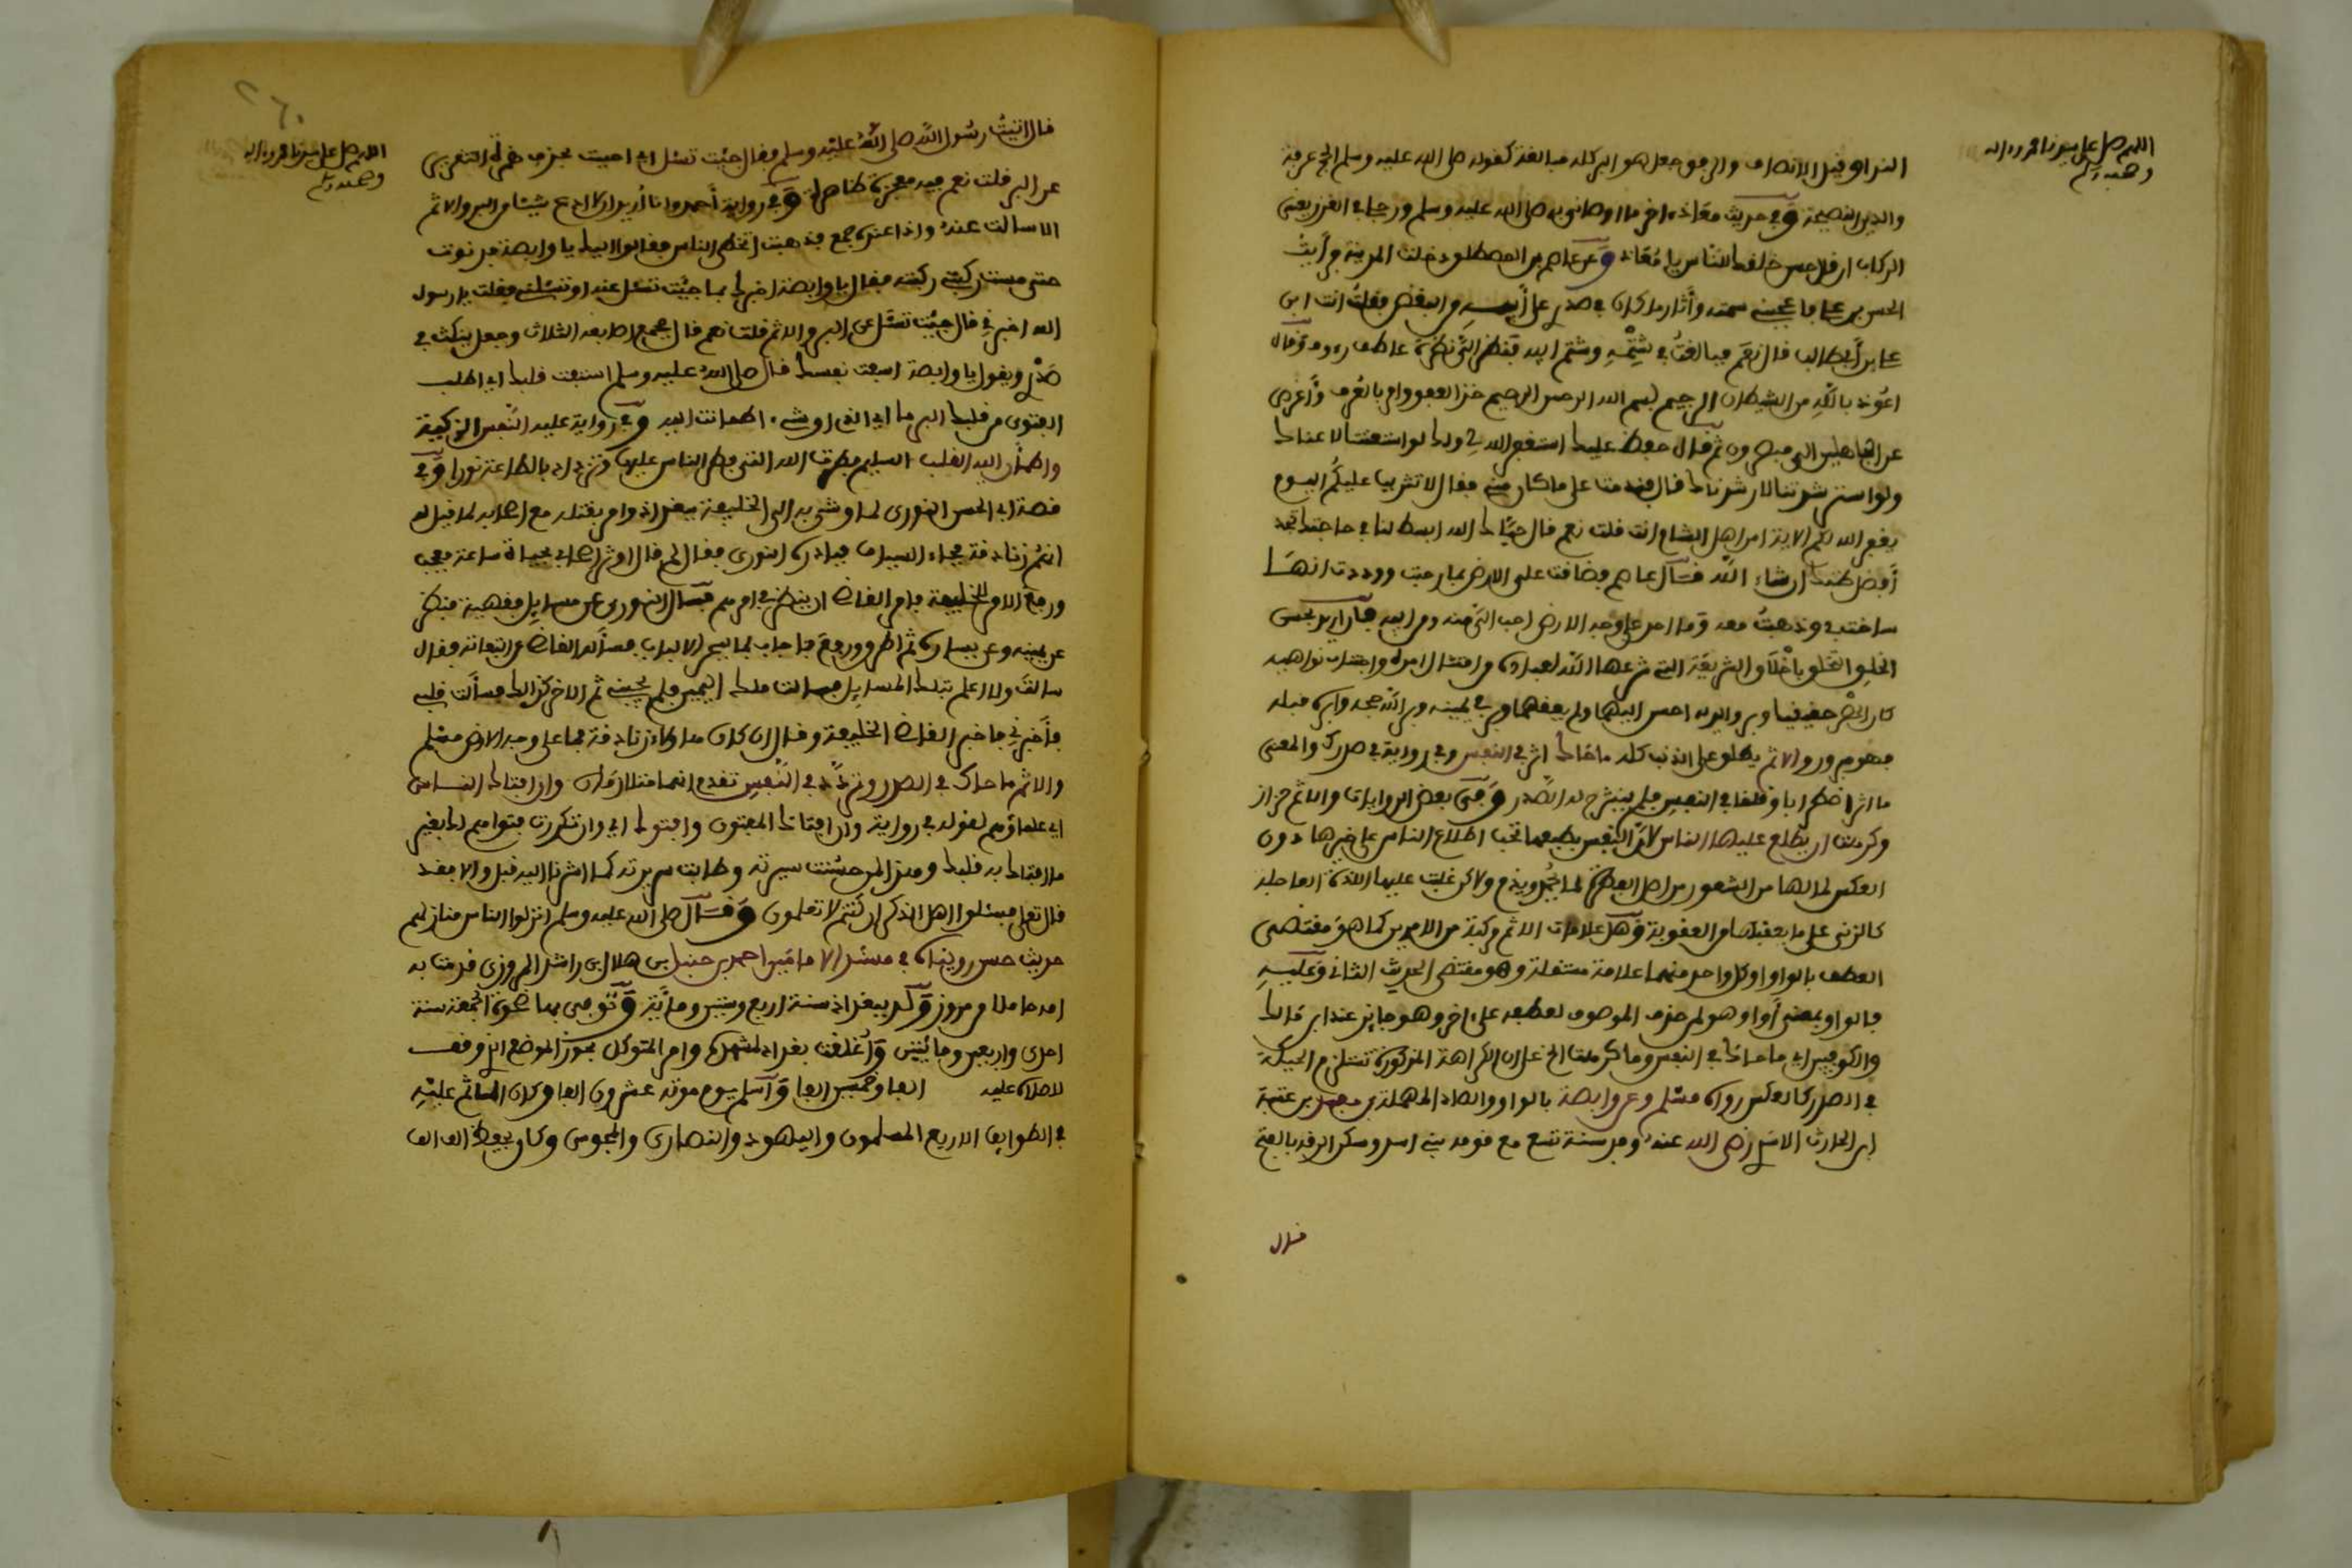 اللهم صل على سيدنا محمد وءاله
وصحبه وسلم
الندا وقيل الانصاف والرفق وجعل هو البر كله مبالغة كقوله صلى الله عليه وسلم الحج عرفة
والدين النصيحة وفي حديث معاذ ءاخر ما اوصاني به صلى الله عليه وسلم ورجلي في الغرز يعني
الركاب ان قال حسن خلقك للناس يا معاذ وعن عاصم بن المصطلق دخلت المدينة فرأيت
الحسن بن علي فاعجبني سمته وأثار ما كان في صدري على أبيه من البغض فقلت انت ابن
علي بن أبي طالب قال نعم فبالغت في شتمه وشتم ابيه فنظر الي نظرة عاطف رءوف وقال
اعوذ بالله من الشيطان الرجيم بسم الله الرحمن الرحيم خذ العفو وامر بالعرف وأعرض
عن الجاهلين الى مبصرون ثم قال خفض عليك استغفر الله لي ولك لو استعنتنا لاعناك
ولو استرشدتنا لارشدناك قال فندمت على ما كان مني فقال لا تثريب عليكم اليوم
يغفر الله لكم الاية امن اهل الشام انت قلت نعم قال حياك الله ابسط لنا في حاجتك تجد
أفضل ظنك ان شاء الله قال عاصم فضاقت علي الارض بما رحبت ووددت انها
ساخت بي وذهبت معه وما احد على وجه الارض احب الي منه ومن ابيه
الخلق التخلق باخلاق الشريعة التي شرعها الله لعباده من امتثال امره واجتناب نواهيه
كان الخضر حفيفيا وبر والديه احسن اليهما ولم يعقهما وبر في يمينه وبر الله حجه وابره قبله
فهو مبرور والاثم يطلق على الذنب كله ما حاك اثر في النفس وفي رواية في صدرك والمعنى
ما اثر اضطرابا وقلقا في النفس فلم ينشرح له الصدر وفي بعض الروايات والاثم حزاز
وكرهت ان يطلع عليه الناس لان النفس بطبعها تحب اطلاع الناس على خيرها دون
العكس لما لها من الشعور من اصل الفطرة لما يحمد ويذم ولاكن غلبت عليها اللذة العاجلة
كالزنى على ما يعقبها من العقوبة وهل علامات الاثم مركبة من الامرين كما هو مقتضى
العطف بالواو او كل واحد منهما علامة مستقلة وهو مقتضى الحديث الثاني وعليه
فالواو بمعنى أو او هو لمن حذف الموصوف لعطفه على ءاخر وهو جايز عند ابن مالك
والكوفيين اي ما حاك في النفس وما كرهت الخ على ان الكراهة المذكورة تستلزم الحيكة
في الصدر كالعكس رواه مسلم وعن وابصة بالواو والصاد المهملة بن معبد بن عتبة
ابن الحارث الاسدي رضي الله عنه وفد سنة تسع مع قومه بني اسد وسكن الرقة بالفتح
قال
اللهم صل على سيدنا محمد وءاله
وصحبه وسلم
قال اتيت رسول الله صلى الله عليه وسلم فقال جئت تسئل اي احببت بحذف همزة التقرير
عن البر قلت نعم فيه معجزة ظاهرة وفي رواية أحمد وانا أريد ان لا ادع شيئا من البر والاثم
الا سالت عنه واذا عنده جمع فذهبت اتخطى الناس فقالوا اليك يا وابصة فدنوت
حتى مست ركبتي ركبته فقال يا وابصة اخبرك بما جئت تسئل عنه او تسئلني فقلت يا رسول
الله اخبرني قال جئت تسئل عن البر والاثم قلت نعم قال فجمع اصابعه الثلاث وجعل ينكث في
صدري ويقول يا وابصة استفت نفسك قال صلى الله عليه وسلم استفت قلبك اي اطلب
الفتوى من قلبك البر ما اي الذي او شيء اطمانت اليه وفي رواية عليه النفس الزكية
واطمأن اليه القلب السليم فطرة الله التي فطر الناس عليها وتزداد بالطاعة نورا وفي
قصة ابي الحسن النوري لما وشي به الى الخليفة ببغداد وامر بقتله مع اصحابه لما قيل له
انهم زنادقة فجاء السياف فبادره النوري فقال لم قال اوثر اصحابي بحياة ساعة فعجب
ورفع الامر للخليفة فامر القاضي ان ينظر في امرهم فسأل النوري عن مسايل فقهية فنظر
عن يمينه وعن يساره ثم اطرق ورفع فاجاب بما يبهر الالباب فسأله القاضي عن التفاته فقال
سالت ولا اعلم تلك المسايل فسالت ملك اليمين فلم يجبني ثم الاخر كذالك فسألت قلبي
فأخبرني فاخبر القاضي الخليفة وقال ان كان هاولاء زنادقة فما على وجه الارض مسلم
والاثم ما حاك في الصدر وتردد في النفس تقدم انهما متلازمان وان افتاك الناس
اي علماؤهم لقوله في رواية وان افتاك المفتون وافتوك اي وان تكررت فتواهم لك بغير
ما افتاك به قلبك وهذا لمن حسنت سيرته وطابت سريرته كما اشرنا اليه قبل والا فقد
قال تعلى فسئلوا اهل الذكر ان كنتم لا تعلمون وقال صلى الله عليه وسلم انزلوا الناس منازلهم
حديث حسن رويناه في مسند الامامين احمد بن حنبل بن هلال بن راشد المروزي قدمت به
امه حاملا من مروز وولد ببغداد سنة اربع وستين ومائة وتوفى بها ضحوة الجمعة سنة
احدى واربعين ومائتين وأغلقت بغداد لمشهده وامر المتوكل بحوز الموضع الذي وقف
للصلاة عليه الفا وخمسين الفا وأسلم يوم موته عشرون الفا وكان الماتم عليه
في الطوايف الاربع المسلمون واليهود والنصارى والمجوس وكان يحفظ الف الف